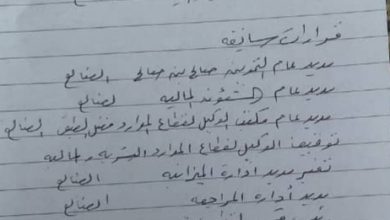 قرارات سابقه
مدير عام التموين صالح بن صالح الضالع
مدير عام الشؤون الماليه لضالع
مدير عام مكتب الوكيل لقطاع الموارد فضل الضالع
توقيف الوكيل لقطاع الموارد البشريه والماليه
تغيير مدير ادارة الميزانيه الضالع
مدير أدارة المراجعه الضالع